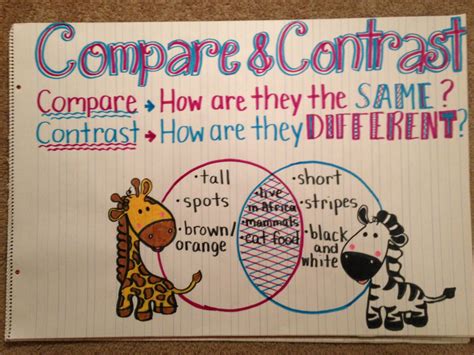 Compare & Contrast
Compare → How are they the SAME?
Contrast → How are they DIFFERENT?
• tall
• spots
• brown/
orange
• live
in Africa
• mammals
• eat food
• short
• stripes
• black
and
white